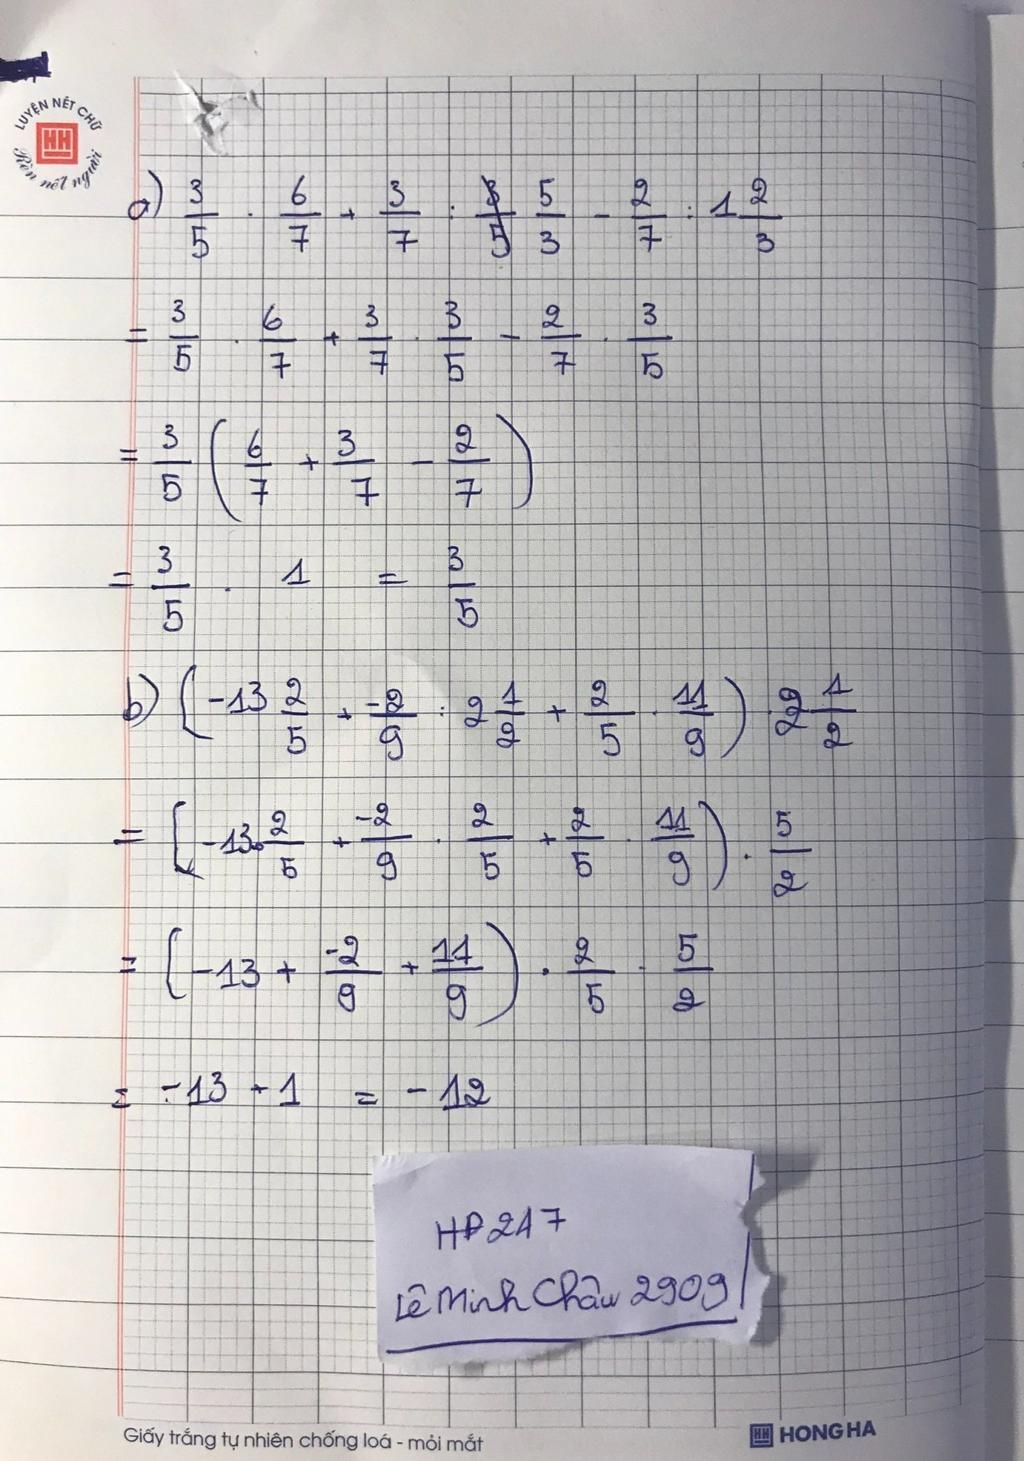 LUYỆN NÉT CHỮ
HH
Rèn nết người
a) 3/5 . 6/7 + 3/7 : 5/3 - 2/7 : 1 2/3
= 3/5 . 6/7 + 3/7 . 3/5 - 2/7 . 3/5
= 3/5 (6/7 + 3/7 - 2/7)
= 3/5 . 1 = 3/5
b) (-13 2/5 + -2/9 : 2 1/2 + 2/5 . 11/9) . 2 1/2
= (-13 . 2/5 + -2/9 . 2/5 + 2/5 . 11/9) . 5/2
= (-13 + -2/9 + 11/9) . 2/5 . 5/2
= -13 + 1 = -12
HP217
Lê Minh Châu 2909
Giấy trắng tự nhiên chống loá - mỏi mắt
HH HONG HA